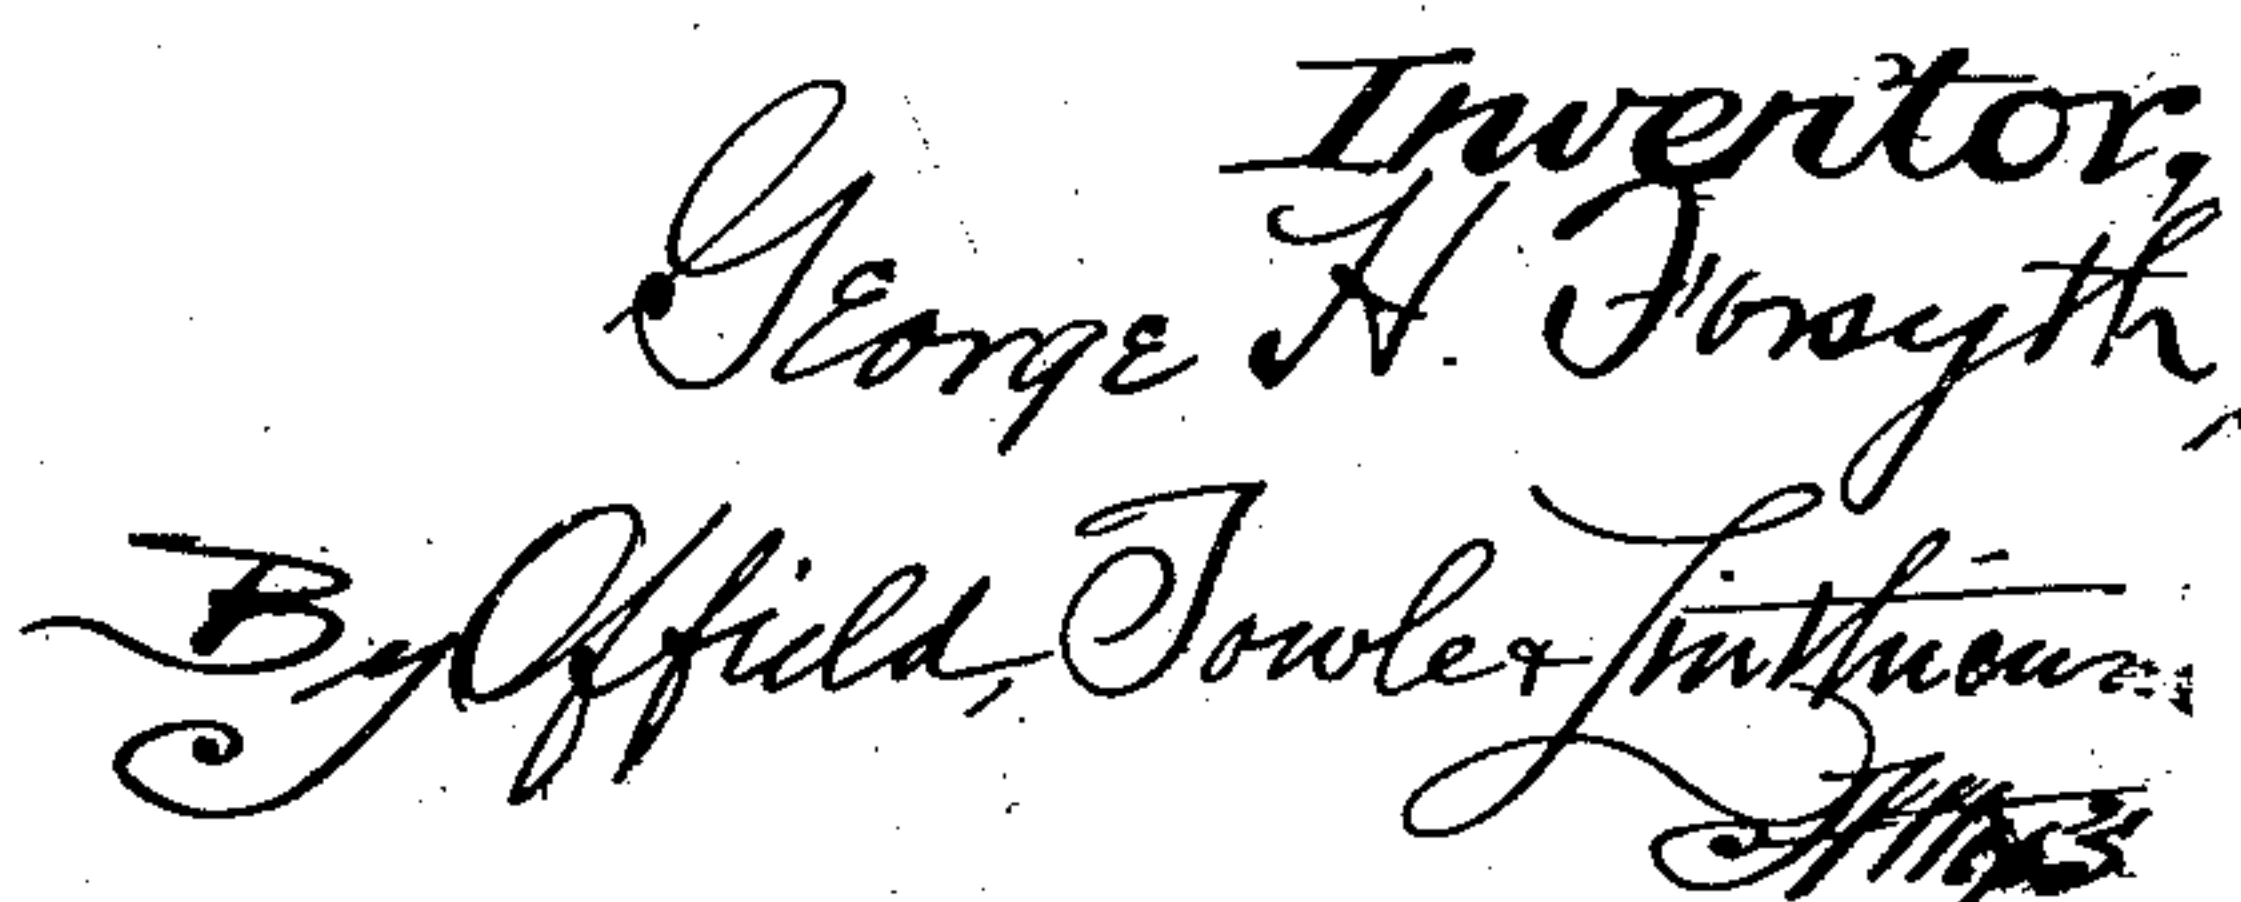 Inventor,
George H. Forsyth,
By Offield, Towle & Linthicum,
Attys